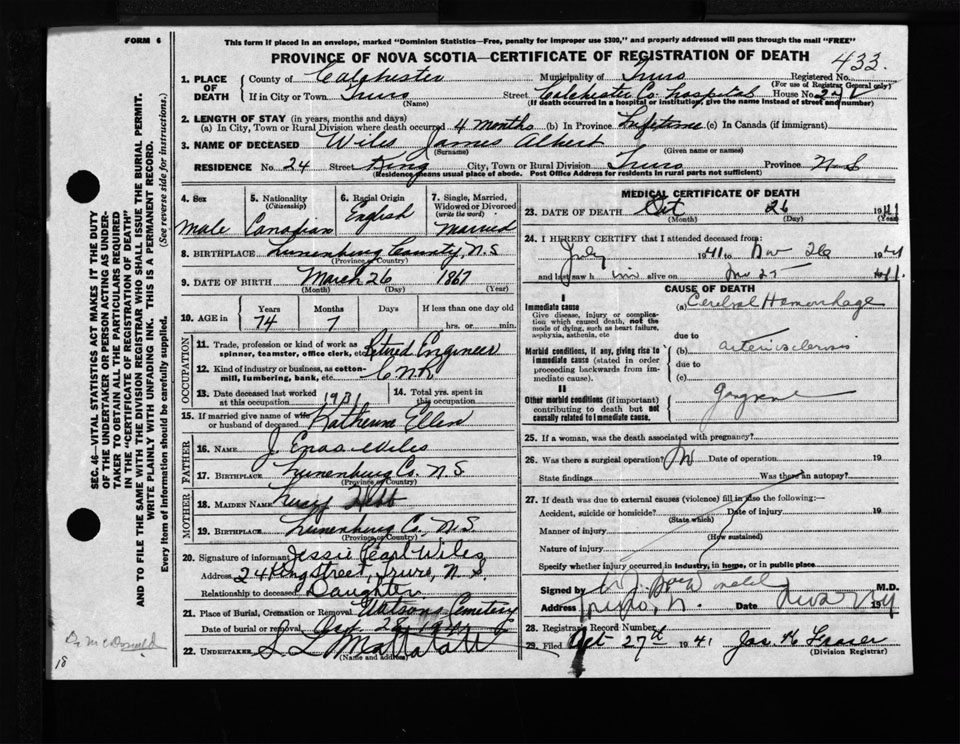 FORM 6
This form if placed in an envelope, marked "Dominion Statistics—Free, penalty for improper use $300," and properly addressed will pass through the mail "FREE"
PROVINCE OF NOVA SCOTIA—CERTIFICATE OF REGISTRATION OF DEATH
433.
1. PLACE OF DEATH
County of Colchester Municipality of Truro Registered No.
(For use of Registrar General only)
If in City or Town Truro Street Colchester Co. hospital House No.
(Name) (If death occurred in a hospital or institution, give the name instead of street and number)
2. LENGTH OF STAY (in years, months and days)
(a) In City, Town or Rural Division where death occurred 4 months (b) In Province Lifetime (c) In Canada (if immigrant)
3. NAME OF DECEASED Wiles James Albert
(Surname) (Given name or names)
RESIDENCE No. 24 Street King City, Town or Rural Division Truro Province N S
(Residence means usual place of abode. Post Office Address for residents in rural parts not sufficient)
4. Sex
Male
5. Nationality
(Citizenship)
Canadian
6. Racial Origin
English
7. Single, Married, Widowed or Divorced
(write the word)
Married
8. BIRTHPLACE Lunenburg County, N.S
(Province or Country)
9. DATE OF BIRTH March 26 1867
(Month) (Day) (Year)
10. AGE in Years Months Days If less than one day old
74 7 hrs. or min.
OCCUPATION
11. Trade, profession or kind of work as spinner, teamster, office clerk, etc. Retired Engineer
12. Kind of industry or business, as cotton-mill, lumbering, bank, etc. C N R
13. Date deceased last worked at this occupation 1931
14. Total yrs. spent in this occupation
15. If married give name of wife or husband of deceased Katherine Ellen
FATHER
16. NAME J Enas Wiles
17. BIRTHPLACE Lunenburg Co. N S
(Province or Country)
MOTHER
18. MAIDEN NAME
19. BIRTHPLACE Lunenburg Co, N.S.
(Province or Country)
20. Signature of informant Jessie Pearl Wiles
Address 24 King Street, Truro, N. S.
Relationship to deceased Daughter
21. Place of Burial, Cremation or Removal Cemetery
Date of burial or removal Oct 28 1941
22. UNDERTAKER
(Name and address)
MEDICAL CERTIFICATE OF DEATH
23. DATE OF DEATH Oct 26 1941
(Month) (Day) (Year)
24. I HEREBY CERTIFY that I attended deceased from:
July 1941 to 26 1941
and last saw h im alive on 25 1941.
CAUSE OF DEATH
I
Immediate cause
Give disease, injury or complication which caused death, not the mode of dying, such as heart failure, asphyxia, asthenia, etc
(a) Cerebral Hemorrhage
due to
Morbid conditions, if any, giving rise to immediate cause (stated in order proceeding backwards from immediate cause).
(b) arteriosclerosis
due to
(c)
II
Other morbid conditions (if important) contributing to death but not causally related to immediate cause.
gangrene
25. If a woman, was the death associated with pregnancy?
26. Was there a surgical operation? No Date of operation 19
State findings Was there an autopsy?
27. If death was due to external causes (violence) fill in also the following:—
Accident, suicide or homicide? Date of injury 19
(State which)
Manner of injury
(How sustained)
Nature of injury
Specify whether injury occurred in industry, in home, or in public place
Signed by M.D.
Address Truro, N. Date 19
28. Registrars Record Number
29. Filed Oct 27th 1941 Jas. H Fraser
(Division Registrar)
SEC. 46—VITAL STATISTICS ACT MAKES IT THE DUTY OF THE UNDERTAKER OR PERSON ACTING AS UNDERTAKER TO OBTAIN ALL THE PARTICULARS REQUIRED IN THE "CERTIFICATE OF REGISTRATION OF DEATH" AND TO FILE THE SAME WITH THE DIVISION REGISTRAR WHO SHALL ISSUE THE BURIAL PERMIT.
WRITE PLAINLY WITH UNFADING INK. THIS IS A PERMANENT RECORD.
Every item of Information should be carefully supplied. (See reverse side for instructions.)
Dr McDonald
18